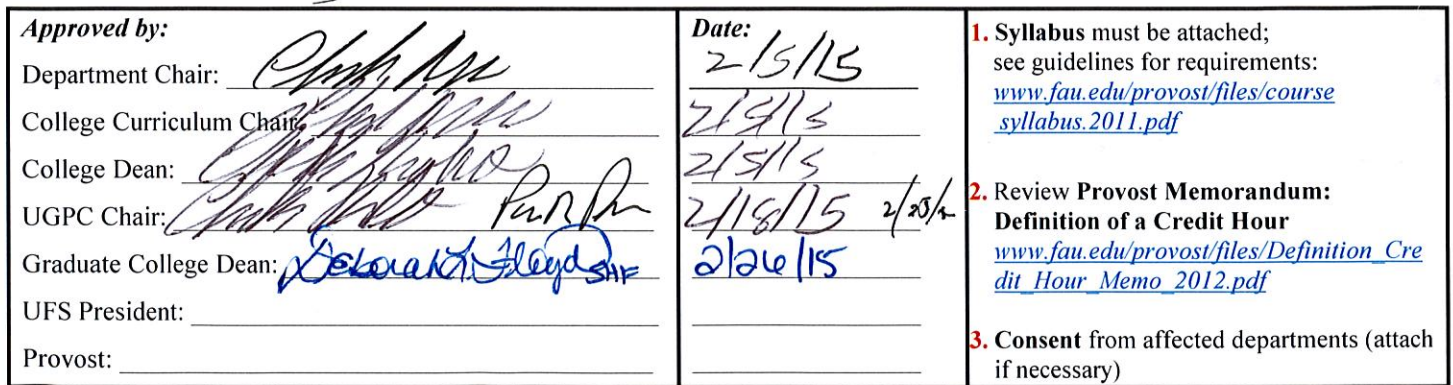 Approved by:
Department Chair:
College Curriculum Chair:
College Dean:
UGPC Chair:
Graduate College Dean: Deborah L. Floyd SHF
UFS President:
Provost:
Date:
2/5/15
2/5/15
2/5/15
2/18/15
2/26/15
1. Syllabus must be attached;
see guidelines for requirements:
www.fau.edu/provost/files/course
_syllabus.2011.pdf
2. Review Provost Memorandum:
Definition of a Credit Hour
www.fau.edu/provost/files/Definition_Cre
dit_Hour_Memo_2012.pdf
3. Consent from affected departments (attach
if necessary)